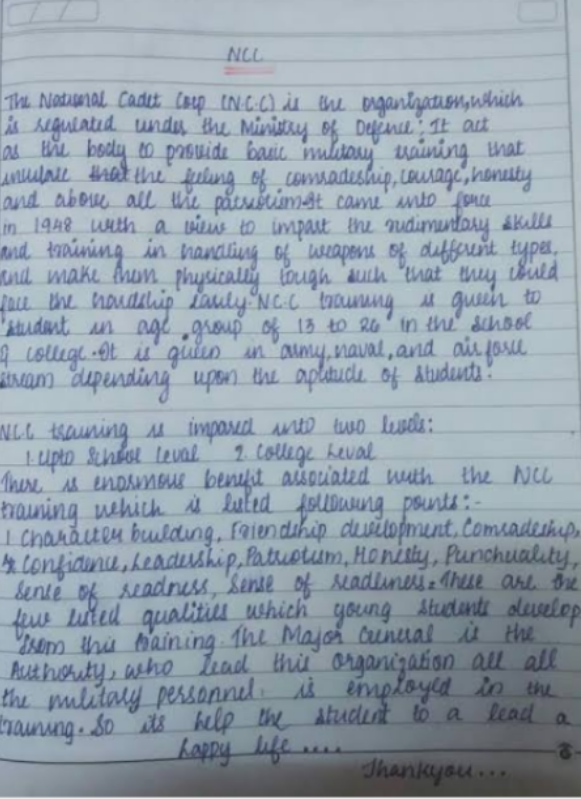 NCC
The National Cadet Corp (N.C.C) is the organization, which
is regulated under the Ministry of Defence. It act
as the body to provide basic military training that
inculate that the feeling of comradeship, courage, honesty
and above all the patriotism. It came into force
in 1948 with a view to impart the rudimentary skills
and training in handling of weapons of different types,
and make them physically tough such that they could
face the hardship easily. N.C.C training is given to
student in age group of 13 to 26 in the school
& college. It is given in army, naval, and air force
stream depending upon the aptitude of students.
N.C.C training is impared into two levels:
1. Upto School Leval 2. College Leval
There is enosmous benefit associated with the NCC
training which is listed following points:-
1. Character building, Friendship development, Comradeship,
Confidence, Leadership, Patriotism, Honesty, Punchuality,
Sense of readness, Sense of readiness. These are the
few listed qualities which young students develop
from this training. The Major General is the
Authority, who lead this organization all all
the military personnel. is employed in the
training. So its help the student to a lead a
happy life ....
Thankyou...